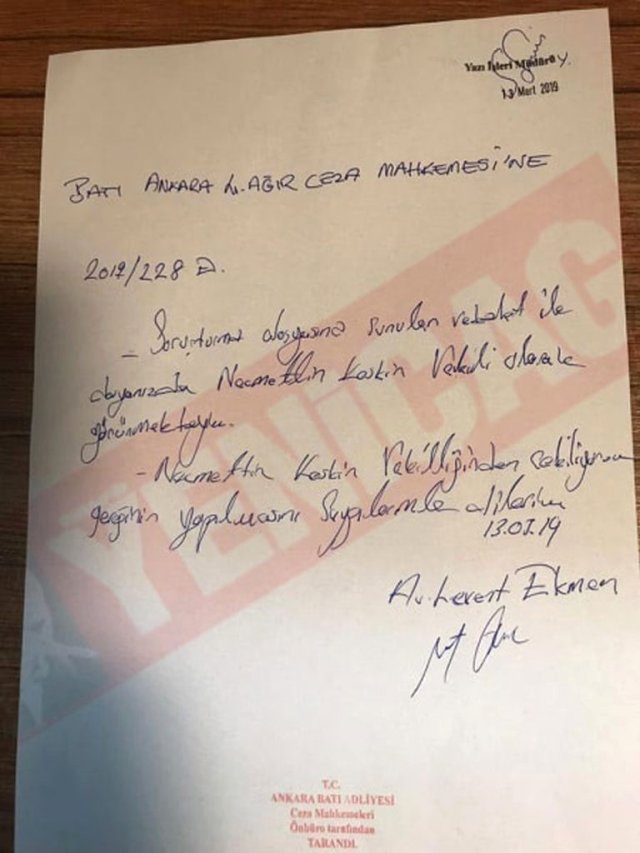 Yazı İşleri Müdürü Y.
13 Mart 2019
BATI ANKARA 4. AĞIR CEZA MAHKEMESİ'NE
2017/228 E.
- Soruşturma dosyasına sunulan vekalet ile
dosyanızda Necmettin Keskin Vekili olarak
görünmekteyim.
- Necmettin Keskin Vekilliğinden çekiliyorum
gereğinin yapılmasını saygılarımla dilerim
13.03.19
Av. Levent Ekmen
YENİÇAĞ
T.C.
ANKARA BATI ADLİYESİ
Ceza Mahkemeleri
Önbüro tarafından
TARANDI.